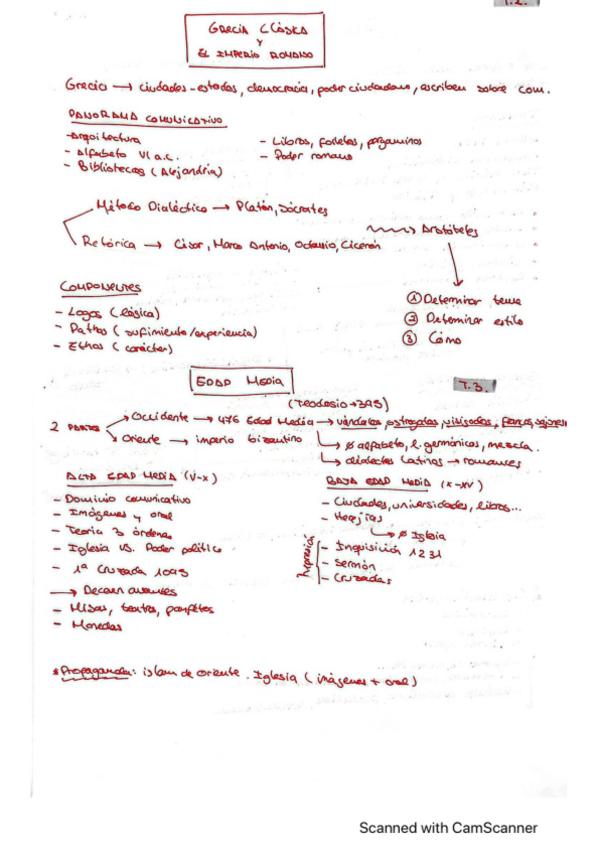 T.2.
GRECIA CLÁSICA
Y
EL IMPERIO ROMANO
Grecia → ciudades-estados, democracia, poder ciudadano, escriben sobre com.
PANORAMA COMUNICATIVO
- Arquitectura
- Alfabeto VI a.C.
- Bibliotecas (Alejandría)
- Libros, folletos, pergaminos
- Poder romano
Método Dialéctico → Platón, Sócrates
Retórica → César, Marco Antonio, Octavio, Cicerón
Aristóteles
① Determinar tema
② Determinar estilo
③ Cómo
COMPONENTES
- Logos (lógica)
- Pathos (sufrimiento/experiencia)
- Ethos (carácter)
EDAD MEDIA
T.3.
(Teodosio → 395)
2 PARTES
Occidente → 476 Edad Media → vándalos, ostrogodos, visigodos, francos, sajones
Oriente → imperio bizantino
ø alfabeto, l. germánicas, mezcla.
dialectos latinos → romances
ALTA EDAD MEDIA (V-X)
- Dominio comunicativo
- Imágenes y oral
- Teoría 3 órdenes
- Iglesia vs. Poder político
- 1ª Cruzada 1095
→ Decaen
- Misas, teatro, panfletos
- Monedas
BAJA EDAD MEDIA (X-XV)
- Ciudades, universidades, libros...
- Herejías
→ ø Iglesia
Represión
- Inquisición 1231
- Sermón
- Cruzadas
*Propaganda: islam de oriente. Iglesia (imágenes + oral)
Scanned with CamScanner